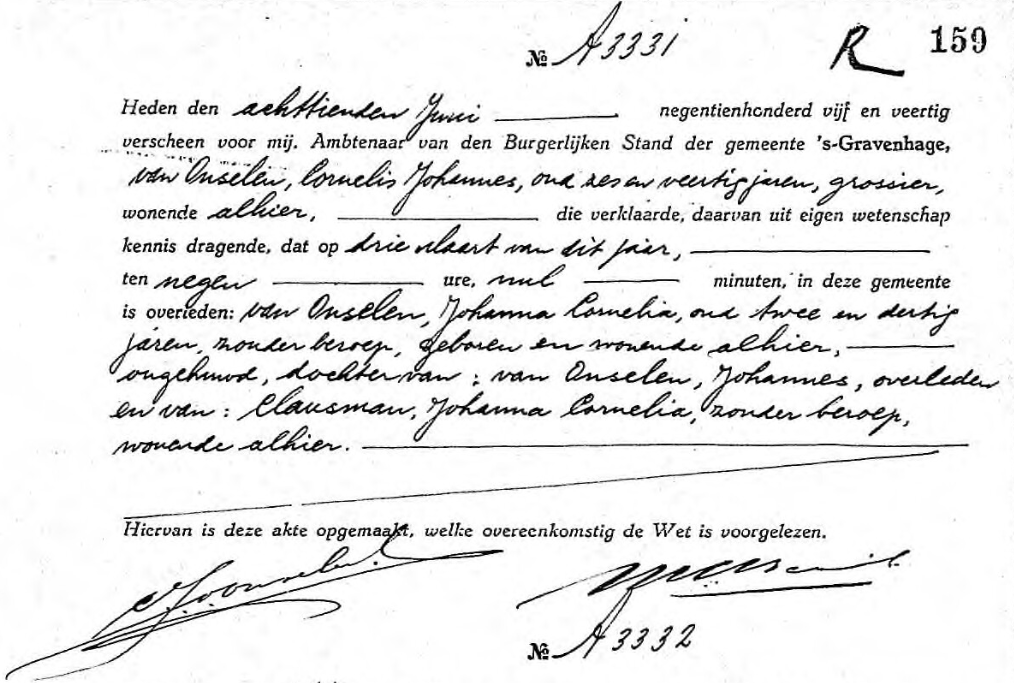 № A3331 R 159
Heden den achttienden Juni negentienhonderd vijf en veertig
verscheen voor mij. Ambtenaar van den Burgerlijken Stand der gemeente 's-Gravenhage,
van Onselen, Cornelis Johannes, oud zes en veertig jaren, grossier,
wonende alhier, die verklaarde, daarvan uit eigen wetenschap
kennis dragende, dat op drie Maart van dit jaar,
ten negen ure, nul minuten, in deze gemeente
is overleden: van Onselen, Johanna Cornelia, oud twee en dertig
jaren, zonder beroep, geboren en wonende alhier,
ongehuwd, dochter van : van Onselen, Johannes, overleden
en van : Clausman, Johanna Cornelia, zonder beroep,
wonende alhier.
Hiervan is deze akte opgemaakt, welke overeenkomstig de Wet is voorgelezen.
№ A3332